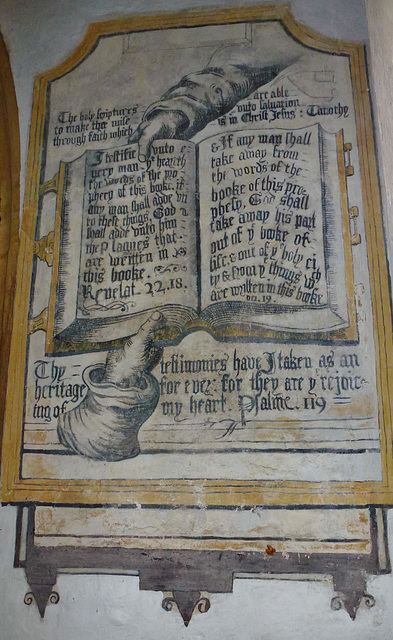 The holy scriptures
to make thee wise
through faith which
are able
unto salvation
is in Christ Jesus : Timothy
I testifie unto e
very man yͭ heareth
the words of the pro
phecy of this booke. if
any man shall adde un
to these things God
shall adde unto him
the plagues that
are written in
this booke.
Revelat. 22.18.
& If any man shall
take away from
the words of the
booke of this pro
phesy, God shall
take away his part
out of yͤ booke of
life, & out of yͤ holy ci
ty & from yͤ things wͨ
are written in this booke
vr. 19.
Thy testimonies have I taken as an
heritage for ever: for they are yͤ rejoyc
ing of my heart. Psalme. 119